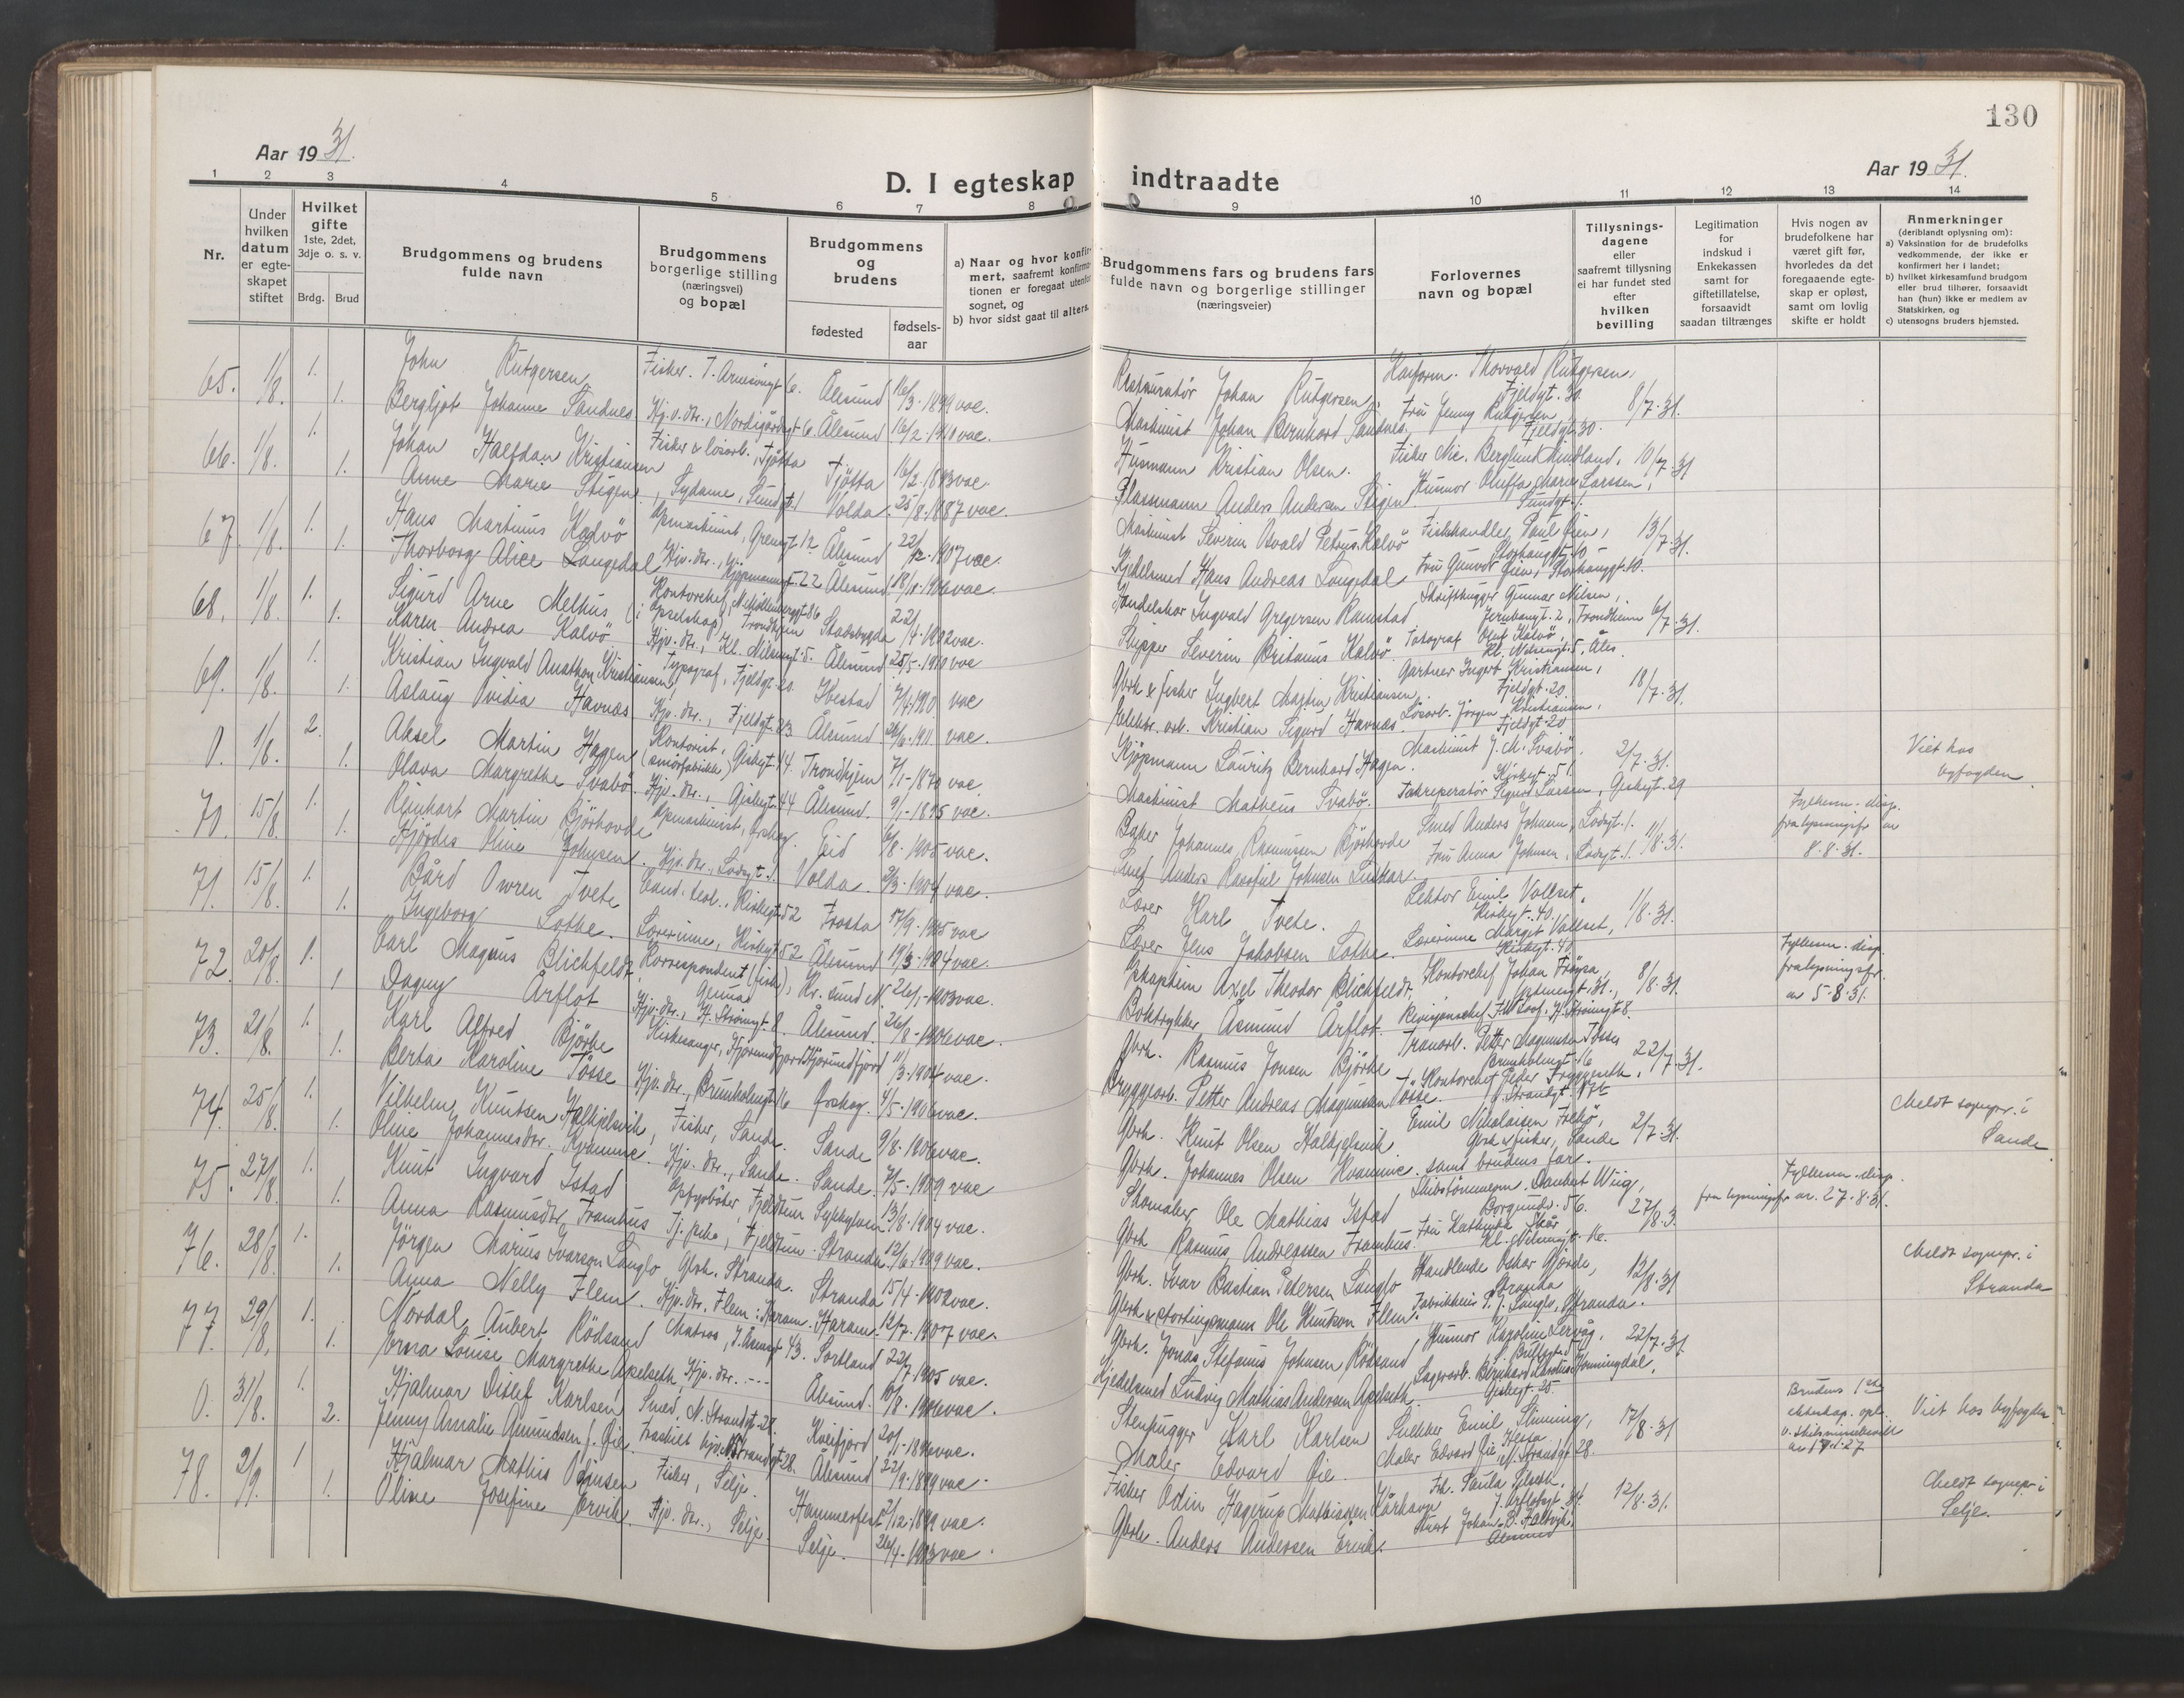 130
Aar 1931.
Aar 1931.
D. I egteskap indtraadte
1 2 3 4 5 6 7 8 9 10 11 12 13 14
Nr.
Under hvilken datum er egte- skapet stiftet
Hvilket gifte 1ste, 2det, 3dje o. s. v.
Brdg. Brud
Brudgommens og brudens fulde navn
Brudgommens borgerlige stilling (næringsvei) og bopæl
Brudgommens og brudens
fødested
fødsels- aar
a) Naar og hvor konfir- mert, saafremt konfirma- tionen er foregaat utenfor sognet, og
b) hvor sidst gaat til alters.
Brudgommens fars og brudens fars fulde navn og borgerlige stillinger (næringsveier)
Forlovernes navn og bopæl
Tillysnings- dagene eller saafremt tillysning ei har fundet sted efter hvilken bevilling
Legitimation for indskud i Enkekassen samt for giftetillatelse, forsaavidt saadan tiltrænges
Hvis nogen av brudefolkene har været gift før, hvorledes da det foregaaende egte- skap er opløst, samt om lovlig skifte er holdt
Anmerkninger (deriblandt oplysning om):
a) Vaksination for de brudefolks vedkommende, der ikke er konfirmert her i landet;
b) hvilket kirkesamfund brudgom eller brud tilhører, forsaavidt han (hun) ikke er medlem av Statskirken, og
c) utensogns bruders hjemsted.
65. 1/8. 1. John Rutgersen. Fisker. Ålesund 16/3-1899 vac. Johan Rutgersen. Thorvald Rutgersen, Fjeldgt. 30. 8/7-31.
1. Bergljot Johanne Sandnes Hj.v. dtr., Nordigårdsgt 6 Ålesund 16/2-1910 vac. Maskinist Johan Bernhard Sandnes. Fru Jenny Rutgersen Fjeldgt 30.
66. 1/8. 1. Johan Halfdan Kristiansen Fisker & løsarb., Tjøtta Tjøtta 16/2-1893 vac. Husmann Kristian Olsen. Fisker Nic. Berglund Mindland, 10/7-31
1. Anne Marie Stigen, Sydame, Sundgt. 1 Volda. 25/8-1887 vac. Plassmann Anders Andersen Stigen. Hunnor Oluffa Marie Larssen, Sundgt. 1.
67. 1/8. 1. Hans Martinus Kalvö Opmaskinist, Grensegt 12 Ålesund 22/12-1907 vac. Maskinist Severin Osvald Petrus Kalvö Fiskehandler Paul Öien, Storhaugt. 10. 13/7-31.
1. Thorborg Alice Langedal Hjv. dtr., Kjøpmannsgt 22 Ålesund 1906 vac. Kjedelsmed Hans Andreas Langedal Fru Gunvor Öien, Storhaugt. 10.
68. 1/8. 1. Sigurd Arne Melhus Kontorchef Trondhjem Stadsbygda 22/4-1902 vac. Handelskar Ingvald Gregersen Ramstad Skrifthugger Gunnar Nilsen, Trondheim 6/7-31.
1. Karen Andrea Kalvö Hjv. dtr., Kl. Nilsengt. 5. Ålesund 25/5-1910 vac Skipper Severin Britanus Kalvö. Fotograf Oluf Kalvö, Kl. Nilsengt. 5, Åles.
69. 1/8. 1. Kristian Ingvald Anathon Kristiansen, Typograf, Fjeldgt. 20. Ibestad vac Gbrk & fisker Ingbert Martin Kristiansen. Gartner Ingert Kristiansen, Fjeldgt. 20. 18/7-31.
1. Aslaug Ovidia Havnæs Hjv. dtr., Fjeldgt. 23 Ålesund 26/6-1911 vac. Elektr. arb. Kristian Sigurd Havnæs. Løsarb. Jörgen Kristiansen, Fjeldgt. 20
0. 1/8. 2. Aksel Martin Hagen Kontorist, (smörfabrikk) Giskegt. 44. Trondhjem 7/1-1870 vac. Kjøpmann Lauritz Bernhard Hagen. Maskinist J. M. Svabö. Kirkegt. 51. 2/7-31. Viet hos byfogden
1. Olava Margrethe Svabö Hjv. dtr., Giskegt. 44 Ålesund. 9/1-1895 vac. Maskinist Matheus Svabö. Sigurd Larsen, Giskegt. 29
70. 15/8. 1. Reinhart Martin Björhovde Opmaskinist, Ørskog. Eid 6/8-1905 vac. Baker Johannes Rasmussen Björhovde Smed Anders Johnsen, Lodsgt. 1. 11/8-31. Fylkesm. disp. fra lysningsfr av 8.8.31.
1. Hjördes Oline Johnsen. Hjv. dtr., Lodsgt. 1. Volda. 1904 vac. Smed Anders Johnsen Fru Anna Johnsen, Lodsgt. 1.
71. 15/8. 1. Bård Owren Tvete Cand. teol., Kirkegt 52 Frosta 17/9-1905 vac Lærer Karl Tvete. Lektor Emil Vollset. Kirkegt. 40. 11/8-31.
1. Ingeborg Lothe. Lærerinne, Kirkegt 52 Ålesund 19/3-1904 vac. Lærer Jens Jakobsen Lothe. Lærerinne Margit Vollset, Kirkegt. 40.
72. 20/8. 1. Carl Magnus Blichfeldt Korrespondent (fisk), Kr.sund N. 26/1-1903 vac. Skipskaptein Axel Theodor Blichfeldt, Kontorchef Johan Fröysa, 8/8-31. Fylkesm. disp. fra lysningsfr. av 5-8-31.
1 Dagny Årflot Hjv. dtr., H. Strømgt. 8. Ålesund. 26/8-1906 vac. Boktrykker Åsmund Årflot. H. Strömgt 8.
73. 21/8. 1. Karl Alfred Björke Kirkesanger, Hjørundfjord Hjørundfjord 11/3-1904 vac. Gbrk. Rasmus Jonsen Björke Tranarb. Petter Magnussen Tösse Brunholmgt. 16 22/7-31.
1. Berta Karoline Tösse Hjv. dtr., Brunholmgt 16 Ørskog. 4/5-1906 vac. Bryggearb. Petter Andreas Magnussen Tösse. Kontorchef Peder Tryggeseth,
74. 25/8. 1. Vilhelm Knutsen Halkjelsvik, Fisker, Sande. Sande 9/8-1906 vac. Gbrk. Knut Olsen Halkjelsvik. Emil Nikolaisen Frekö, Gbrk. & fisker, Sande 2/7-31. Meldt sognepr. i Sande.
1. Oline Johannesdtr. Kvamme Hjv. dtr., Sande. Sande. 7/5-1909 vac Gbrk. Johannes Olsen Kvamme. samt brudens far.
75. 27/8. 1. Knut Ingvard Istad Opfyrböter, Fjeldtun Sykkylven 13/8-1904 vac. Skomaker Ole Mathias Istad Skibstömmerm. Daubert Wiig, Borgundv. 56. 27/8-3 Fylkesm. disp. fra lysningsfr. av. 27.8.31.
1. Anna Rasmusdtr. Framhus Tj.pike, Fjeldtun. Stranda 12/6-1909 vac. Gbrk Rasmus Andreassen Framhus. Fru Kathinka Skår Kl. Nilsengt. 16.
76. 28/8. 1. Jörgen Marius Ivarson Langlo Gbrk. Stranda. Stranda 15/4-1902 vac. Gbrk. Ivar Bastian Petersen Langlo Handlende Oskar Gjörde, Stranda 12/8-31 Meldt sognepr. i Stranda
1. Anna Nelly Flem. Hjv. dtr. Flem i Haram. Haram. 12/7-1907 vac. Gbrk & stortingsmann Ole Knutson Flem. Fabrikkeier P. J. Langlo, Stranda.
77. 29/8. 1. Nordal Aubert Rödsand Matros, 43. Sortland 22/7-1905 vac. Gbrk. Jonas Stefanus Johnsen Rödsand Hunnor Karoline Lervåg, 22/7-31.
1. Erna Louise Margrethe Apelseth Hjv. dtr. --- Ålesund. 1906 vac. Kjedelsmed Ludvig Mathias Andersen Apelseth. Lagerarb. Bernhard Honningdal, Giskegt. 25.
0. 31/8. 1. Hjalmar Ditlef Karlsen Smed, N. Strandgt. 28. Kveifjord 20/1-1896 vac. Stenhugger Karl Karlsen Emil Slinning, Hessa. 17/8-31 Brudens 1ste ekteskap. opl. v. skilsmissebevill. Viet hos byfogden
2. Jenny Amalie Amundsen f. Öie. Fraskilt N. Strandgt 28. Ålesund 22/9-1899 vac. Maler Edvard Öie. Maler Edvard Öie, N. Strandgt 28.
78. 2/9. 1 Hjalmar Mathis Odinsen Fisker, Selje. Hammerfest 2/12-1899 vac. Fisker Odin Hagerup Mathisen Kårhavn Frk. Paula Silseth. J. Årflotsgt. 31. 12/8-31. Meldt sognepr. i Selje.
1. Oline Josefine Ervik. Hjv. dtr., Selje. Selje. 26/4-1903 vac. Gbrk. Anders Andersen Ervik. Johan B. Ålesund